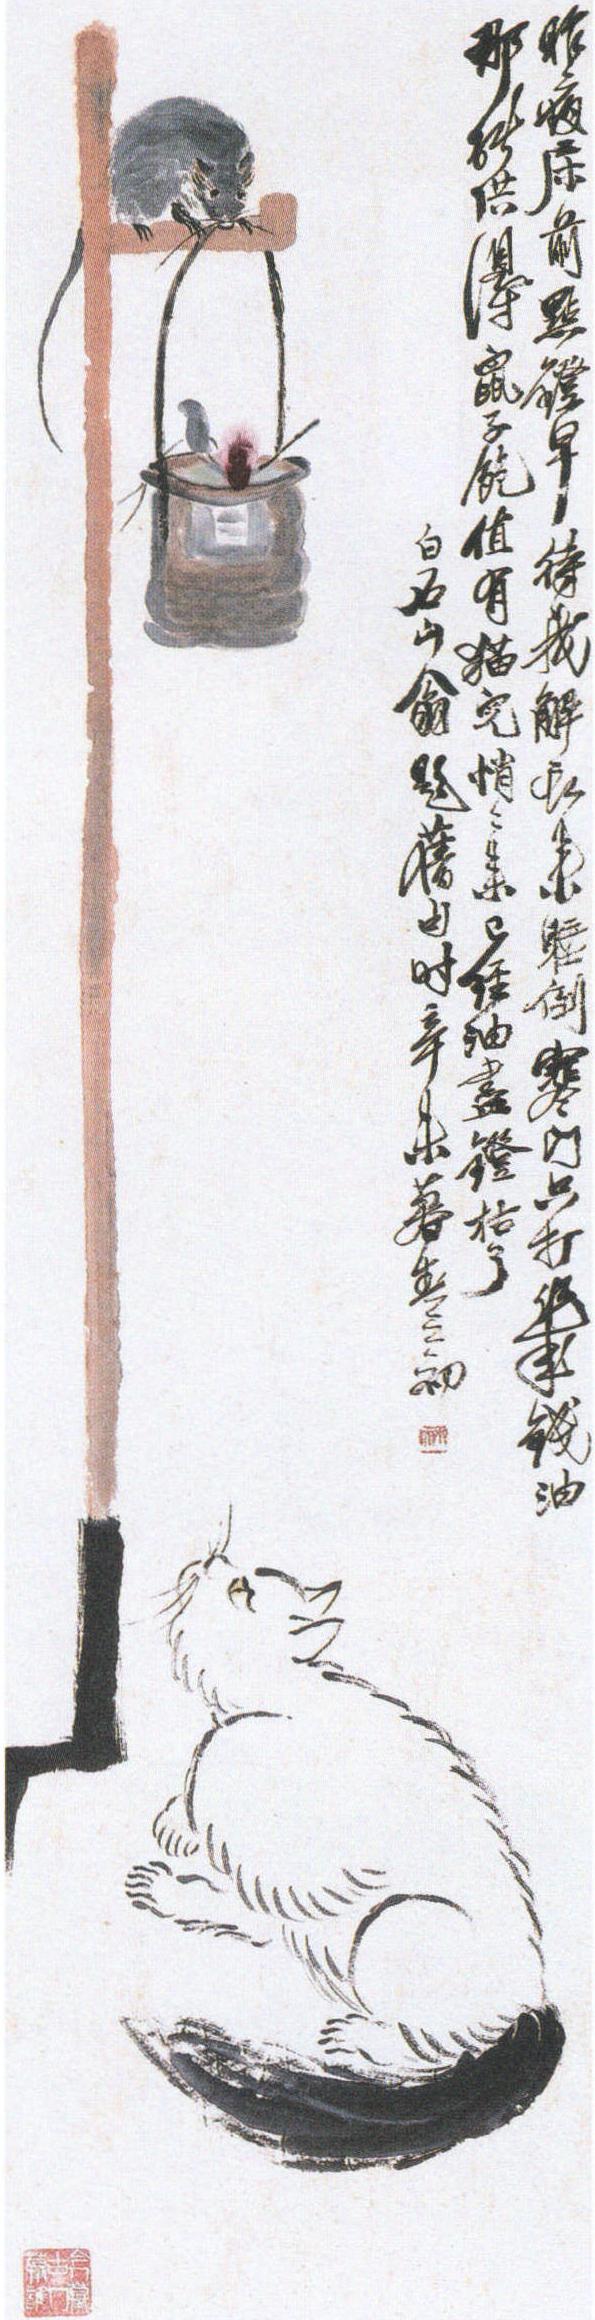 昨夜床前點鐙早待我解衣來睡倒寒門只打錢油
那能供得鼠子飽值有猫兒悄〻來已經油盡鐙枯了
白石山翁題舊句时辛未暮春之初